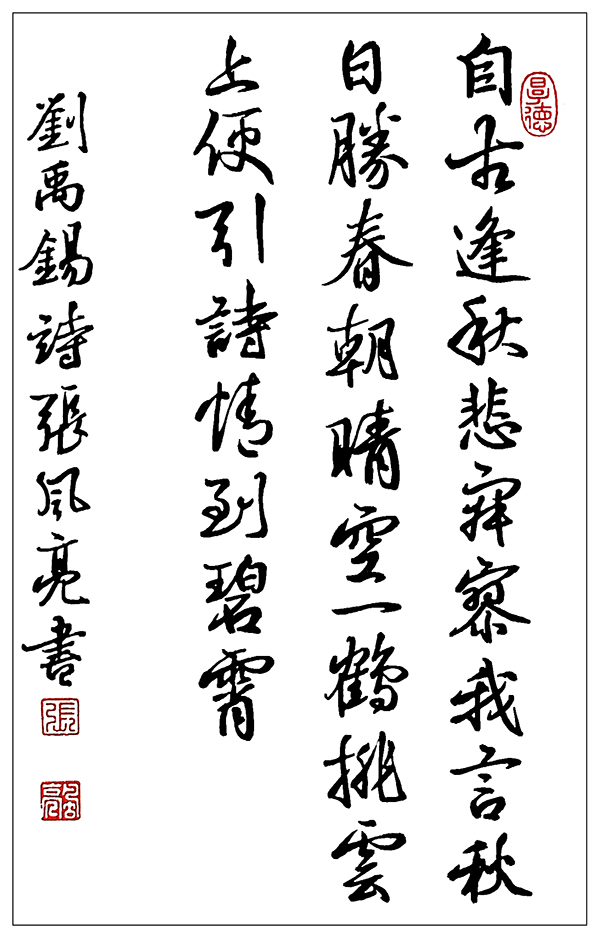 自古逢秋悲寂寥我言秋
日勝春朝晴空一鶴排雲
上便引詩情到碧霄
劉禹錫詩張風亮書
張